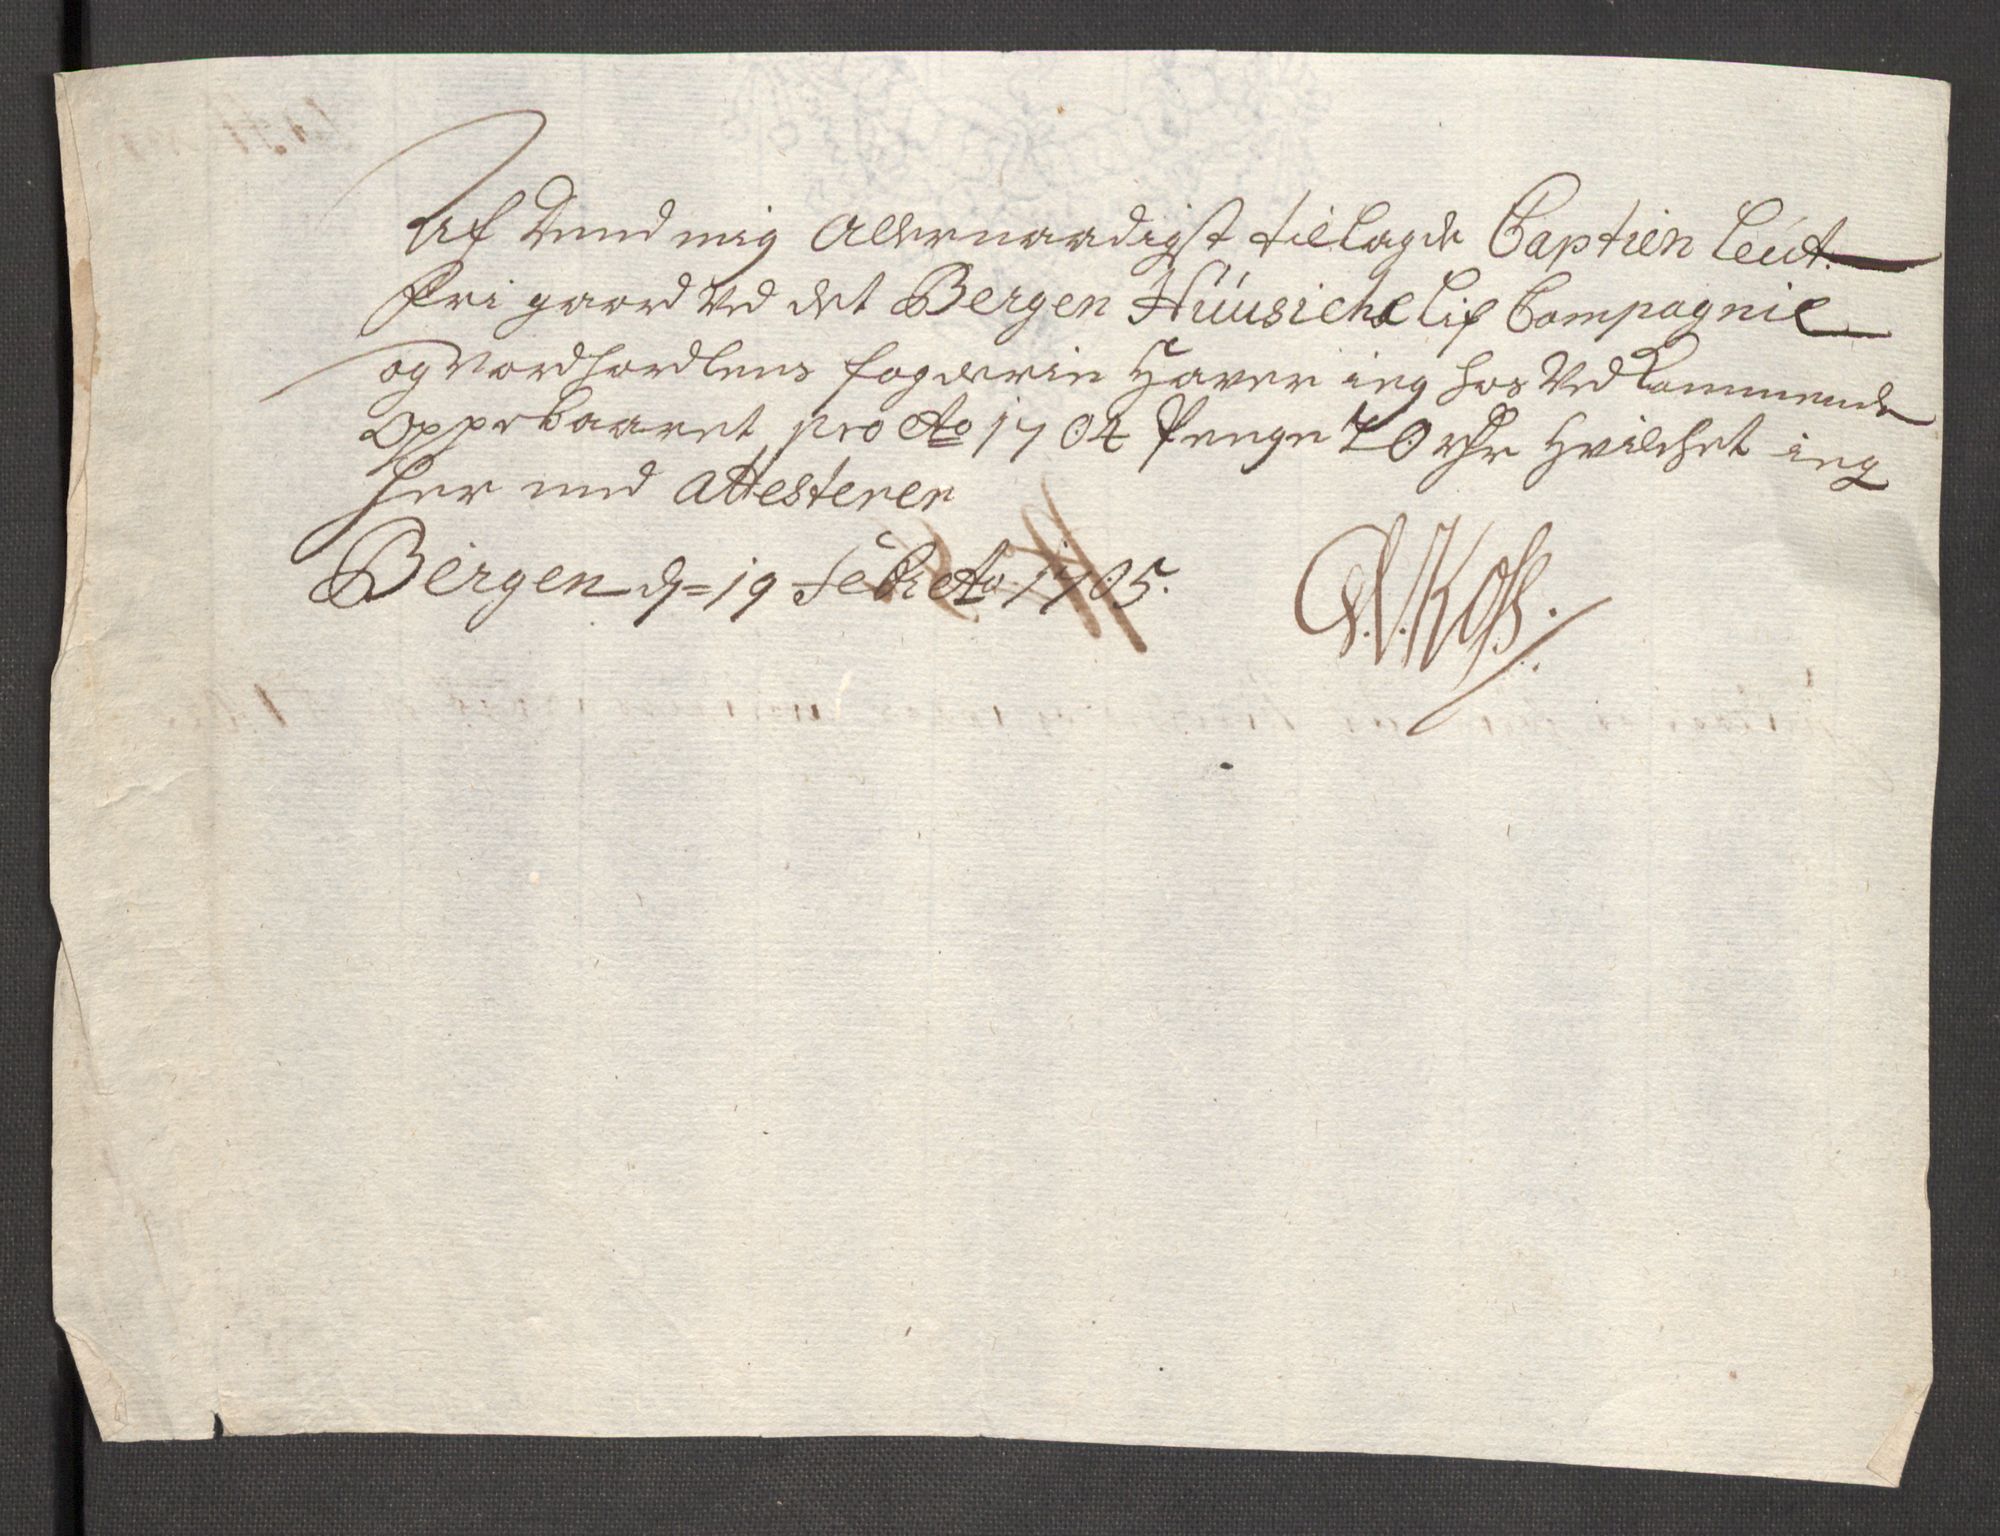 Af Dend mig Allernaadigst tillagde Captien Leut.
Frigaard ved det Bergen Huusiche Lif Compagnie
og Nordhordlens fogderie Haver ieg hos Vedkommende
Oppebaaret pro Ao 1704 Penge 20 rdr Hvilchet ieg
her med Attesterer
Bergen d= 19 Feb: Ao 1705.